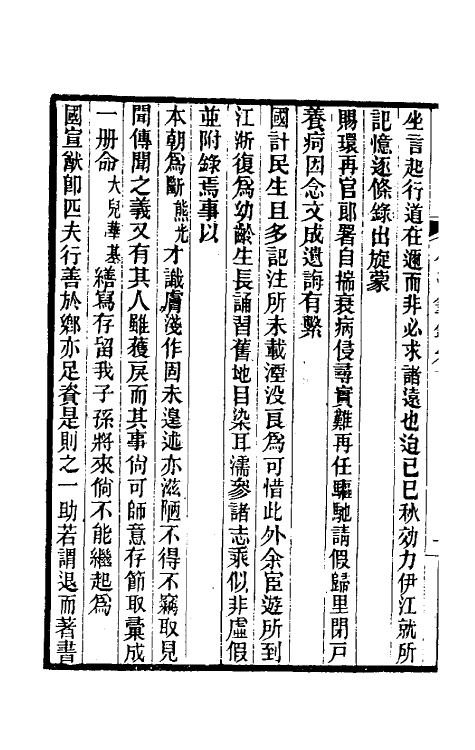 坐言起行道在邇而非必求諸遠也迨己巳秋効力伊江就所
記憶逐條錄出旋蒙
賜環再官郎署自揣衰病侵尋實難再任驅馳請假歸里閉戸
養疴因念文成遺誨有繫
國計民生且多記注所未載湮没良為可惜此外余宦遊所到
江浙復為幼齡生長誦習舊地目染耳濡參諸志乘似非虛假
並附錄焉事以
本朝為斷熊光才識膚淺作固未遑述亦滋陋不得不竊取見
聞傳聞之義又有其人雖獲戾而其事尙可師意存節取彙成
一册命大兒華基繕寫存留我子孫將來倘不能繼起為
國宣猷卽匹夫行善於鄉亦足資是則之一助若謂退而著書